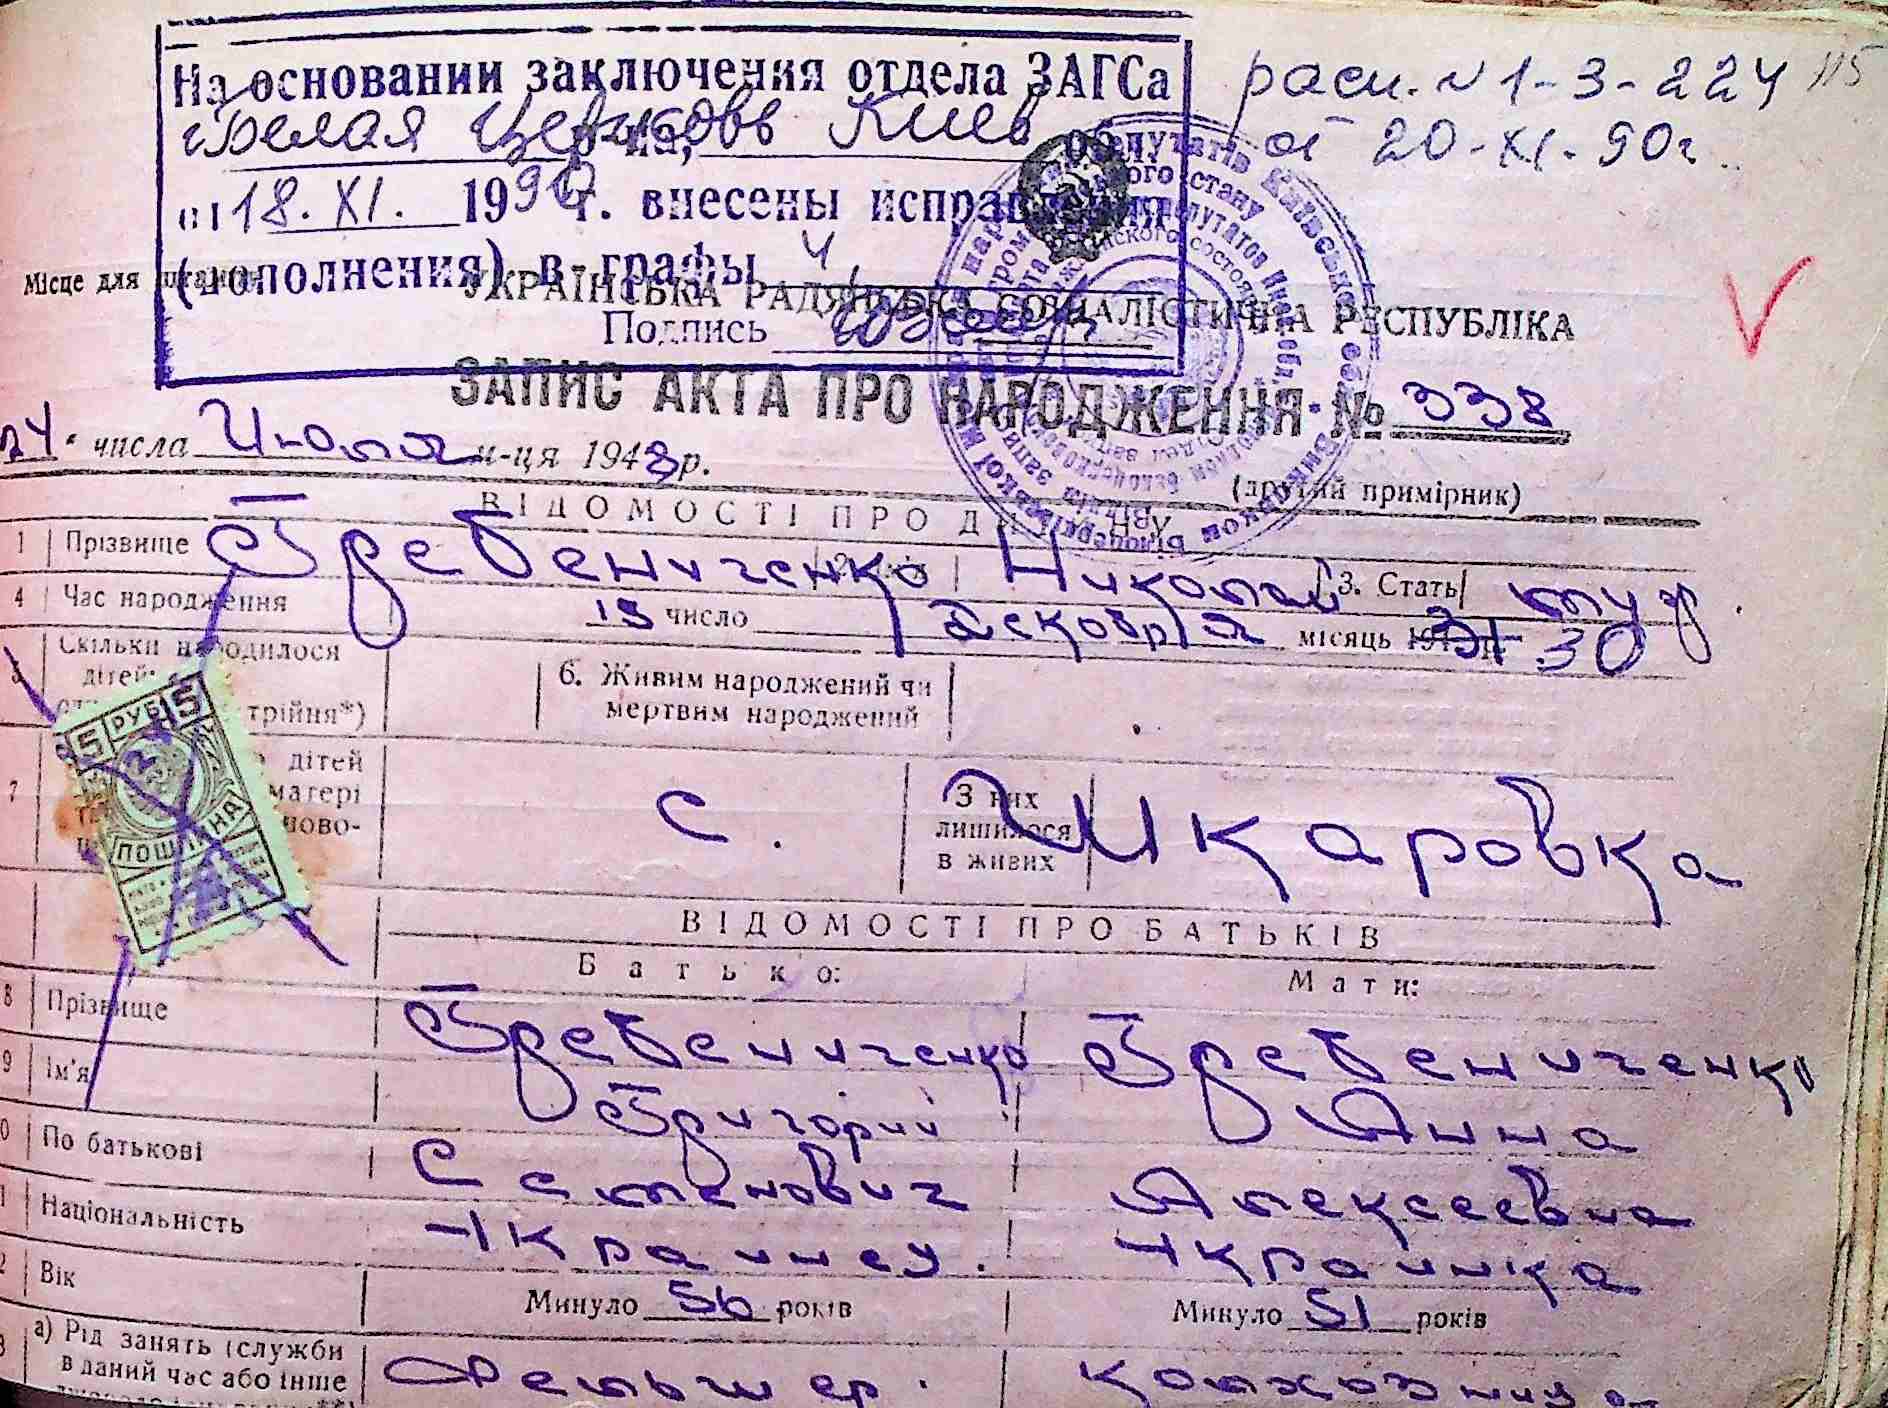 На основании заключения отдела ЗАГСа
г Белая Церковь Киев обл.
от 18.XI. 1990 г. внесены исправления
(дополнения) в графы 4
Подпись
расп. № 1-3-224
от 20-XI-90г.
115
Місце для
УКРАЇНСЬКА РАДЯНСЬКА СОЦІАЛІСТИЧНА РЕСПУБЛІКА
ЗАПИС АКТА ПРО НАРОДЖЕННЯ № 338
24 числа Июля м-ця 1948 р.
(другий примірник)
ВІДОМОСТІ ПРО ДИТИНУ
1 Прізвище Гребениченко Николай 3. Стать муж.
4 Час народження 19 число Декабря місяць 1931 30
Скільки народилося
дітей:
трійня*)
6. Живим народжений чи
мертвим народжений
7 дітей
матері
ново-
З них
лишилося
в живих
с. Шкаровка
5 РУБ 5
ПОШЛИНА
ВІДОМОСТІ ПРО БАТЬКІВ
Батько: Мати:
8 Прізвище Гребениченко Гребениченко
9 Ім'я Григорий Анна
0 По батькові Семенович Алексеевна
1 Національність Украинец. Украинка
2 Вік Минуло 56 років Минуло 51 років
3 а) Рід занять (служби
в даний час або інше
Фельшер. колхозница